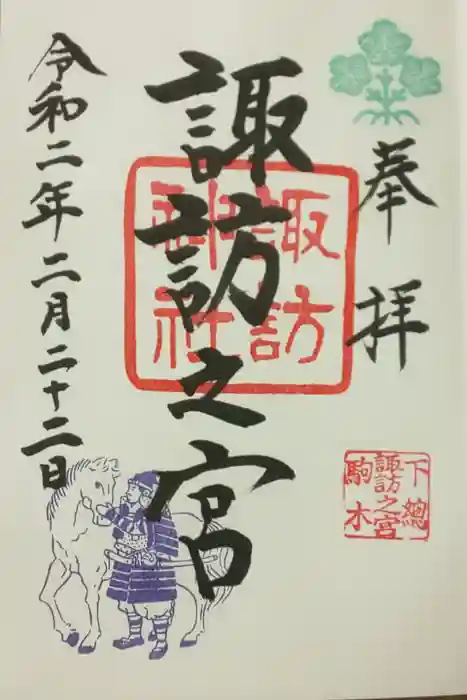 奉拝
諏訪之宮
令和二年二月二十二日
諏訪
神社
下總
諏訪之宮
駒木